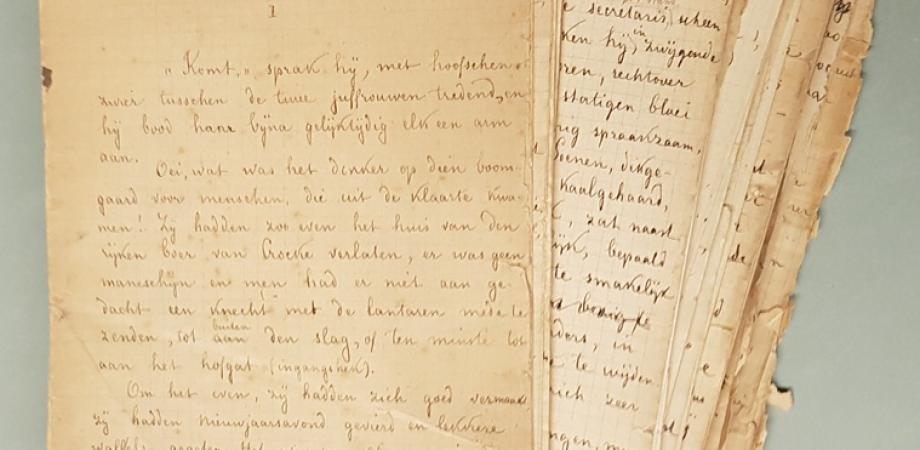 1
„ Komt, „ sprak hij, met hoofschen
zwier tusschen de twee juffrouwen tredend, en
hij bood haar bijna gelijktijdig elk een arm
aan.
Oei, wat was het donker op dien boom-
gaard voor menschen, die uit de klaarte kwa-
men! Zij hadden zoo even het huis van den
rijken boer van Crocke verlaten, er was geen
maneschijn en men had er niet aan ge-
dacht een knecht met de lantaren mede te
zenden, tot buiten aan den slag, of ten minste tot
aan het hofgat (ingangshek).
Om het even, zij hadden zich goed vermaakt
zij hadden nieuwjaarsavond gevierd en lekkere
wafels
e secretaris, scheen
ken hij, in zwijgende
ren, rechtover
statigen bloei
rig spraakzaam,
oenen, dikge-
kaalgehaard,
, zat naast
ijk, bepaald
te smakelijk
t bezig te
ders, in
e te wijden
rich zeer
ngen, m